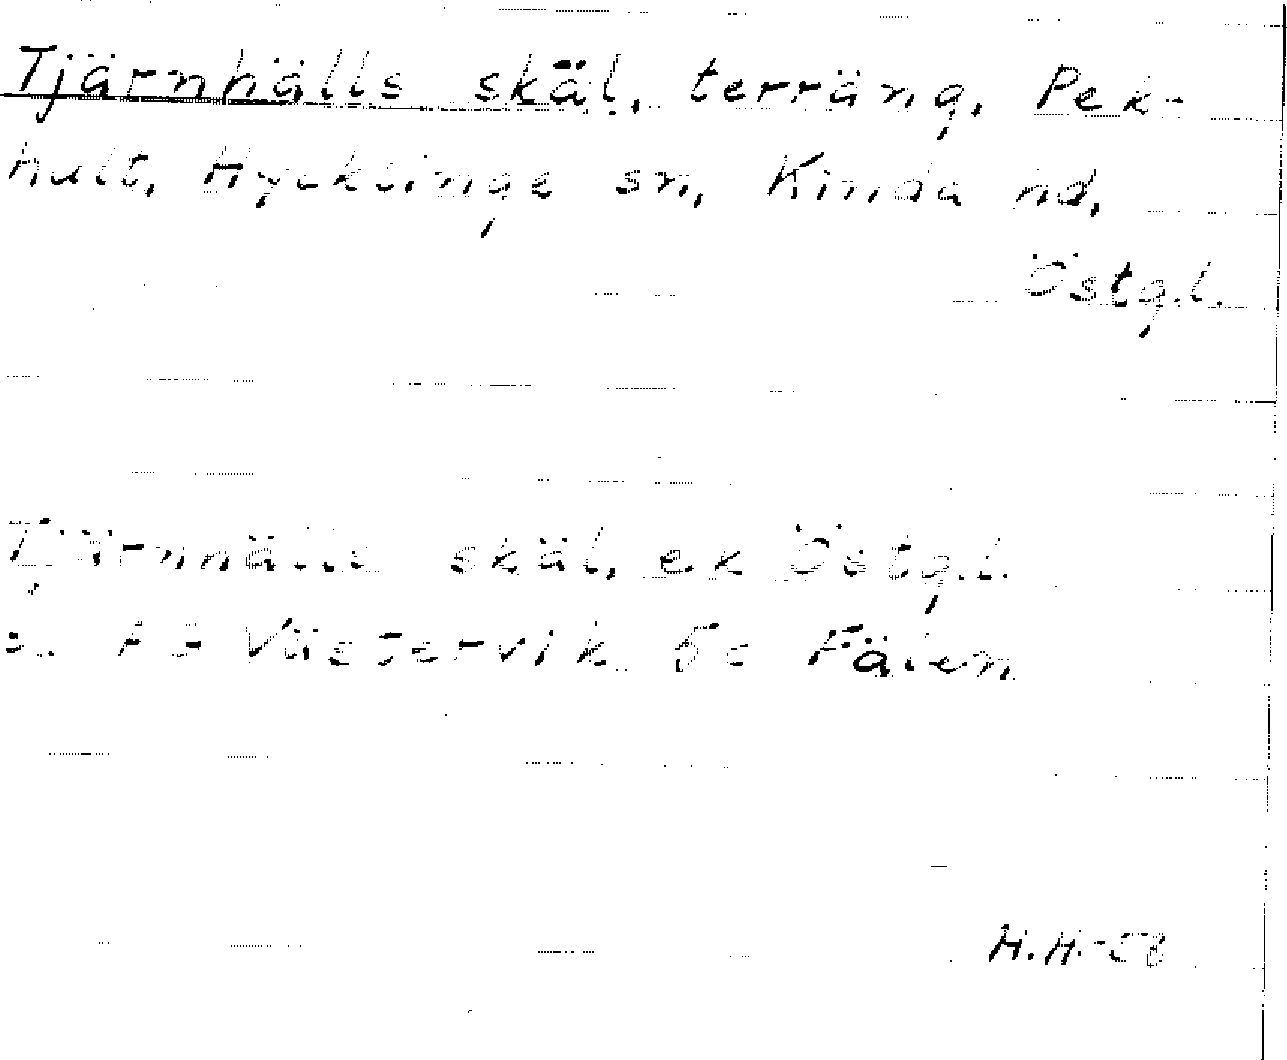 Tjärnhälls skäl, terräng, Pek-
hult, Hycklinge sn, Kinda hd,
Östg.l.
Tjärnhälls skäl, ek Östg.l.
Västervik 5c Fålen
H.H.-58